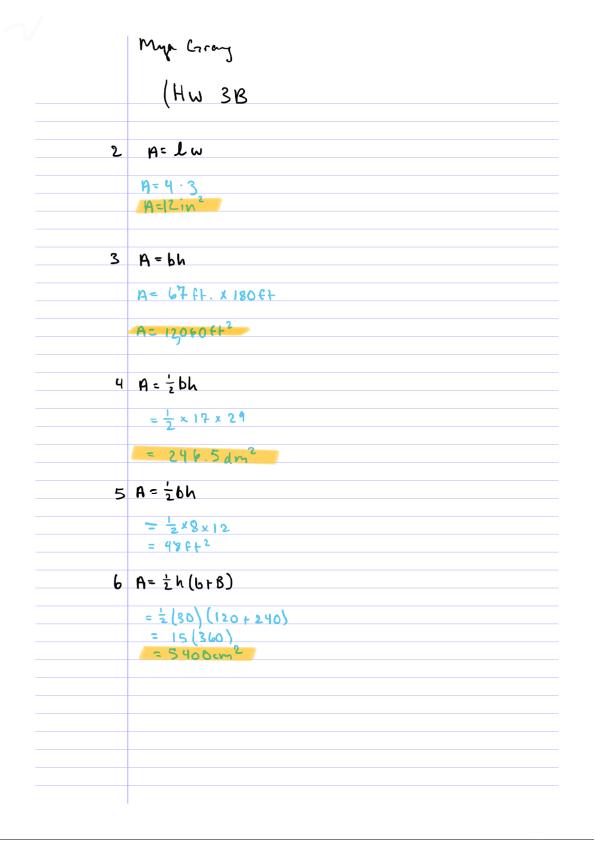 Mya Gray
(Hw 3B
2 A = lw
A = 4 · 3
A = 12 in²
3 A = bh
A = 67 ft. × 180 ft
A = 12,060 ft²
4 A = ½ bh
= ½ × 17 × 29
= 246.5 dm²
5 A = ½ bh
= ½ × 8 × 12
= 48 ft²
6 A = ½ h (b + B)
= ½ (30) (120 + 240)
= 15 (360)
= 5400 cm²